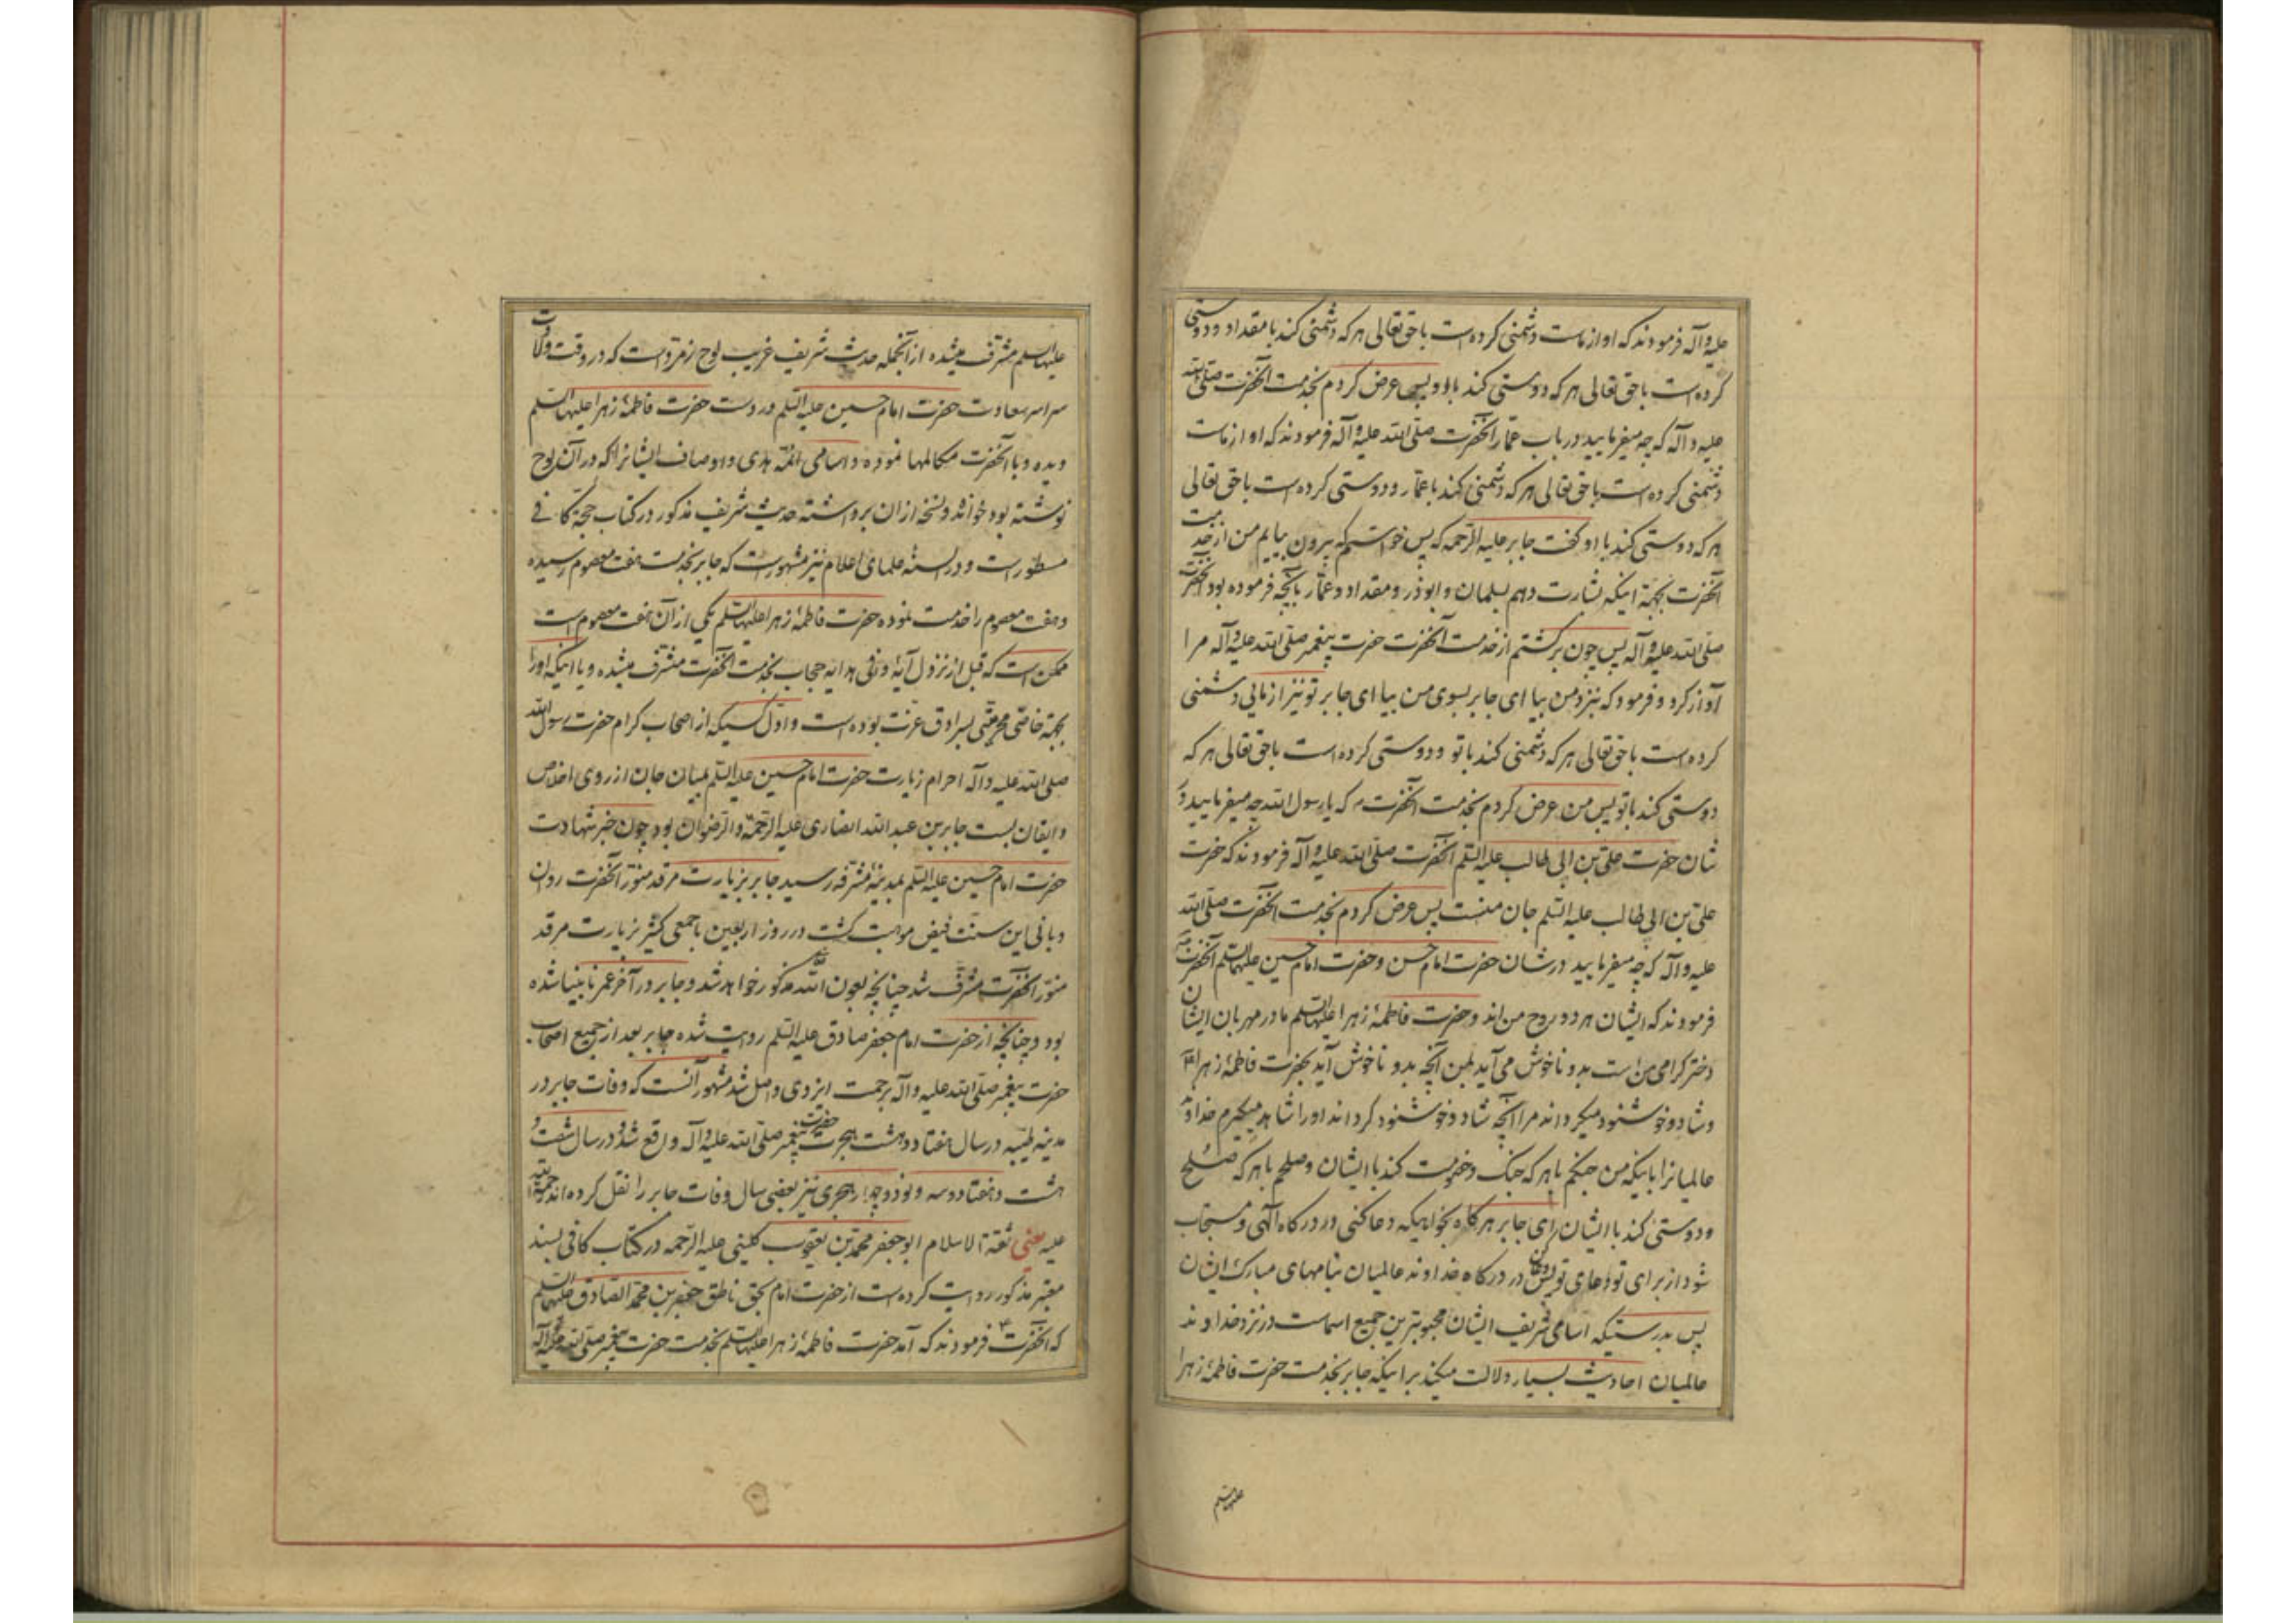 علیه و آله فرمودند که او از ماست دشمنی کرده است با حق تعالی هر که دشمنی کند با مقداد و دوستی
کرده است با حق تعالی هر که دوستی کند با او پس عرض کردم بخدمت آنحضرت صلی الله
علیه و آله که چه میفرمایید در باب عمار آنحضرت صلی الله علیه و آله فرمودند که او از ماست
دشمنی کرده است با حق تعالی هر که دشمنی کند با عمار و دوستی کرده است با حق تعالی
هر که دوستی کند با او گفت جابر علیه الرحمه که پس خواستم که بیرون بیایم من از خدمت
آنحضرت بجهة اینکه بشارت دهم بسلمان و ابوذر و مقداد و عمار بآنچه فرموده بود آنحضرت
صلی الله علیه و آله پس چون برگشتم از خدمت آنحضرت حضرت پیغمبر صلی الله علیه و آله مرا
آواز کرد و فرمود که بنزد من بیا ای جابر بسوی من بیا ای جابر تو نیز از مائی دشمنی
کرده است با حق تعالی هر که دشمنی کند با تو و دوستی کرده است با حق تعالی هر که
دوستی کند با تو پس من عرض کردم بخدمت آنحضرت که یا رسول الله چه میفرمایید در
شان حضرت علی بن ابی طالب علیه السلم آنحضرت صلی الله علیه و آله فرمودند که حضرت
علی بن ابی طالب علیه السلم جان منست پس عرض کردم بخدمت آنحضرت صلی الله
علیه و آله که چه میفرمایید در شان حضرت امام حسن و حضرت امام حسین علیهما السلم آنحضرت
فرمودند که ایشان هر دو روح من اند و حضرت فاطمهٔ زهرا علیها السلم مادر مهربان ایشان
دختر کرامی من است بد و ناخوش می آید بمن آنچه بد و ناخوش آید بحضرت فاطمهٔ زهرا
و شاد و خوشنود میکرداند مرا آنچه شاد و خوشنود کرداند او را شاهد میکیرم خداوند
عالمیانرا باینکه من جنکم با هر که جنک و خصومت کند با ایشان و صلحم با هر که صلح
و دوستی کند با ایشان ای جابر هرکاه بخواهیکه دعا کنی در درکاه آلهی و مستجاب
شود از برای تو دعای تو پس دعا کن در درکاه خداوند عالمیان بنامهای مبارک ایشان
پس بدرستیکه اسامی شریف ایشان محبوبترین جمیع اسماست در نزد خداوند
عالمیان احادیث بسیار دلالت میکند براینکه جابر بخدمت حضرت فاطمهٔ زهرا
علیها السلم
علیها السلم مشرف میشده از آنجمله حدیث شریف غریب لوح زمرد است که در وقت ولادت
سراسر سعادت حضرت امام حسین علیه السلم در دست حضرت فاطمهٔ زهرا علیها السلم
دیده و با آنحضرت مکالمها نموده و اسامی ائمهٔ هدی و اوصاف ایشانرا که در آن لوح
نوشته بود خوانده و نسخه از ان برداشته حدیث شریف مذکور در کتاب حجة کافی
مسطور است و در السنه علمای اعلام نیز مشهور است که جابر بخدمت هفت معصوم رسیده
و هفت معصوم را خدمت نموده حضرت فاطمهٔ زهرا علیها السلم یکی از آن هفت معصوم است
ممکن است که قبل از نزول آیهٔ حجاب بخدمت آنحضرت مشرف میشده و یا اینکه او را
بجهة خاصی محرمیتی بسرادق عزت بوده است و اول کسیکه از اصحاب کرام حضرت رسول الله
صلی الله علیه و آله احرام زیارت حضرت امام حسین علیه السلم بمیان جان از روی اخلاص
و ایقان بست جابر بن عبد الله انصاری علیه الرحمة و الرضوان بود چون خبر شهادت
حضرت امام حسین علیه السلم بمدینهٔ مشرفه رسید جابر بزیارت مرقد منور آنحضرت روان
و بانی این سنت فیض موهبت کشت در روز اربعین با جمعی کثیر بزیارت مرقد
منور آنحضرت مشرف شد چنانچه بعون الله مذکور خواهد شد و جابر در آخر عمر نابینا شده
بود و چنانچه از حضرت امام جعفر صادق علیه السلم روایت شده جابر بعد از جمیع اصحاب
حضرت پیغمبر صلی الله علیه و آله برحمت ایزدی واصل شد مشهور آنست که وفات جابر در
مدینه طیبه در سال هفتاد و هشت هجرت حضرت پیغمبر صلی الله علیه و آله واقع شد و در سال شصت و
هشت و هفتاد و سه و نود و چهار هجری نیز بعضی سال وفات جابر را نقل کرده اند رحمة الله
علیه یعنی ثقة الاسلام ابو جعفر محمد بن یعقوب کلینی علیه الرحمه در کتاب کافی بسند
معتبر مذکور روایت کرده است از حضرت امام بحق ناطق جعفر بن محمد الصادق علیهما السلم
که آنحضرت فرمودند که آمد حضرت فاطمهٔ زهرا علیها السلم بخدمت حضرت پیغمبر صلی الله علیه و آله